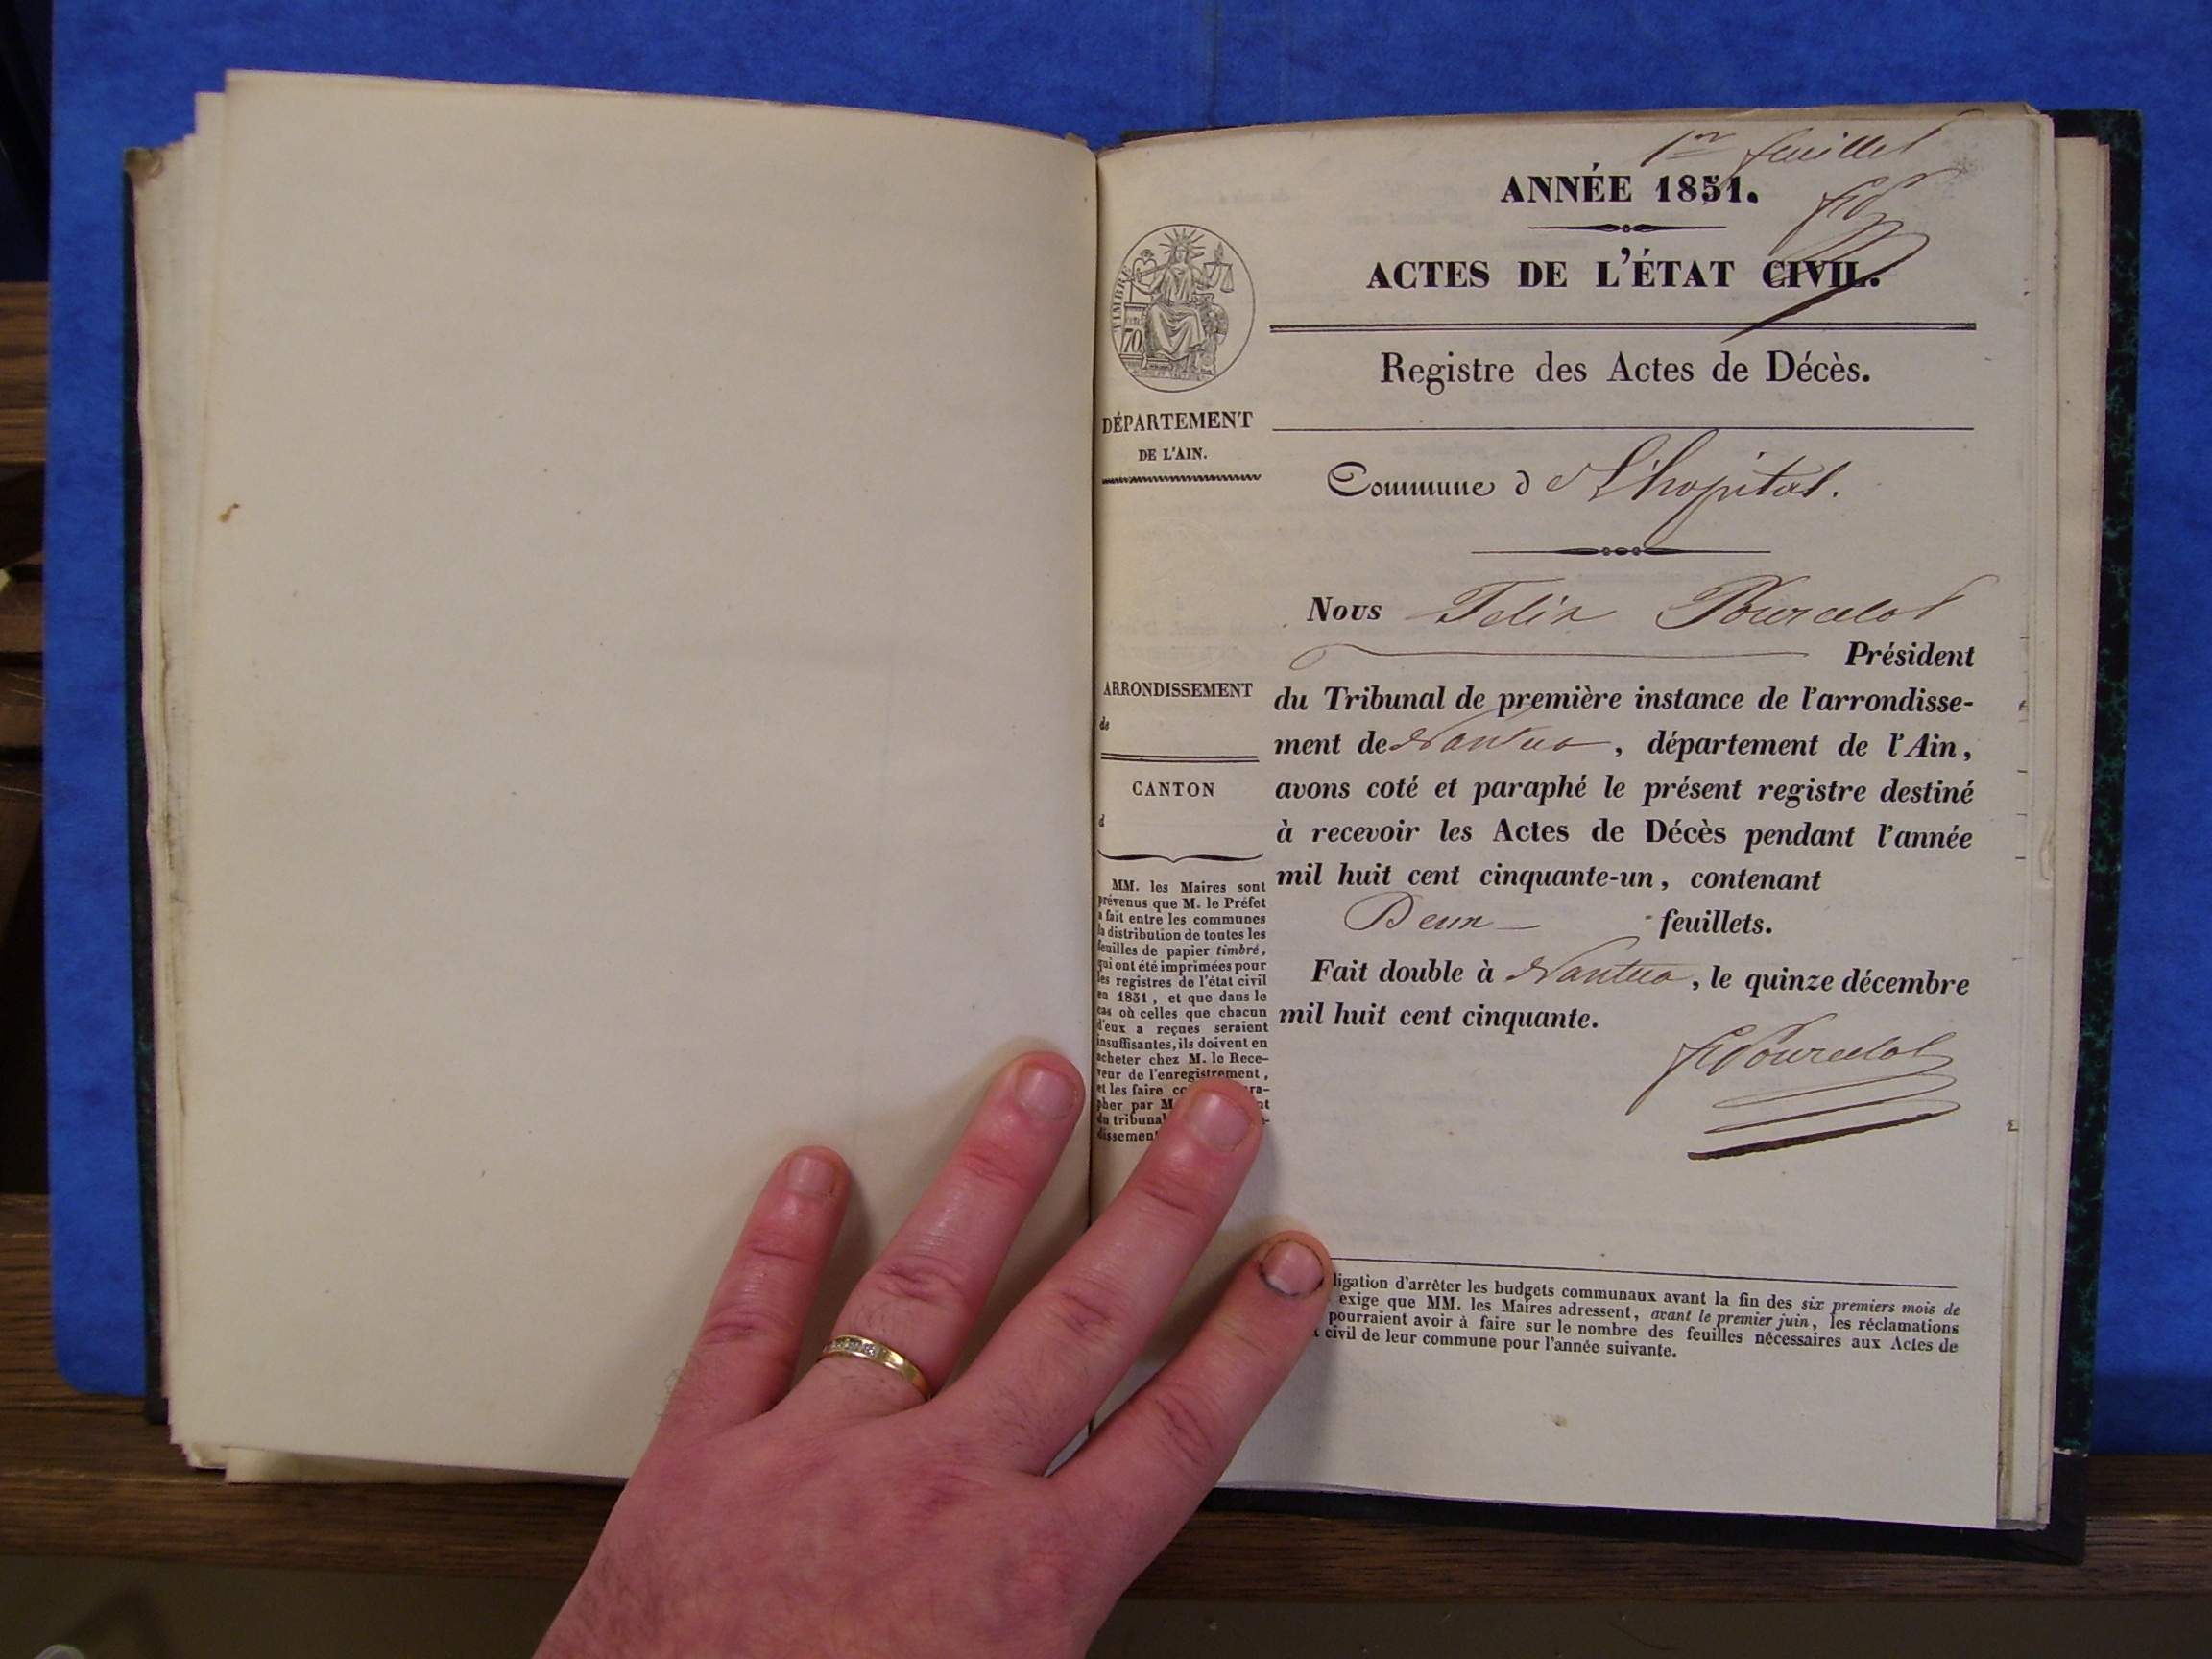 1er feuillet
ANNÉE 1851.
ACTES DE L'ÉTAT CIVIL.
Registre des Actes de Décès.
TIMBRE
70
DÉPARTEMENT
DE L'AIN.
Commune d e L'hopital.
Nous Felix Pourcelot
Président
du Tribunal de première instance de l'arrondisse-
ment de Nantua, département de l'Ain,
avons coté et paraphé le présent registre destiné
à recevoir les Actes de Décès pendant l'année
mil huit cent cinquante-un, contenant
Deux feuillets.
Fait double à Nantua, le quinze décembre
mil huit cent cinquante.
F Pourcelot
ARRONDISSEMENT
de
CANTON
d
MM. les Maires sont
prévenus que M. le Préfet
a fait entre les communes
la distribution de toutes les
feuilles de papier timbré,
qui ont été imprimées pour
les registres de l'état civil
en 1851, et que dans le
cas où celles que chacun
d'eux a reçues seraient
insuffisantes, ils doivent en
acheter chez M. le Rece-
veur de l'enregistrement,
et les faire co ra-
pher par M nt
du tribunal
dissement
ligation d'arrêter les budgets communaux avant la fin des six premiers mois de
exige que MM. les Maires adressent, avant le premier juin, les réclamations
pourraient avoir à faire sur le nombre des feuilles nécessaires aux Actes de
civil de leur commune pour l'année suivante.